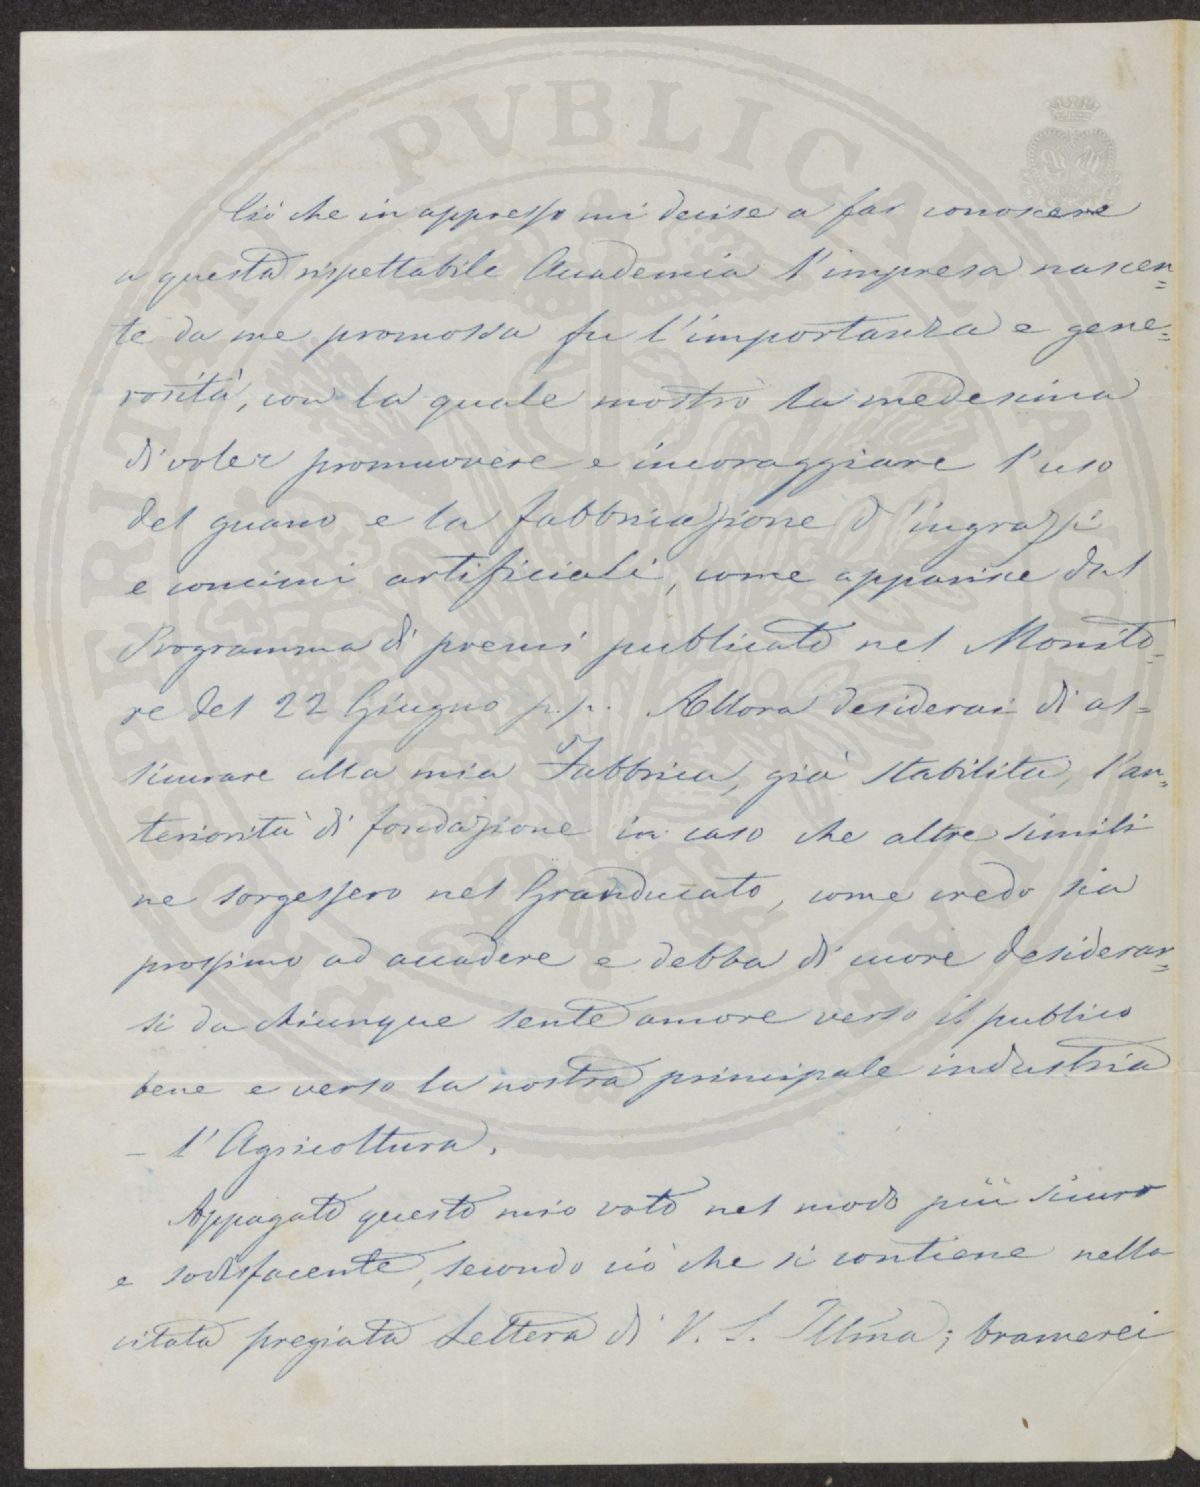 Ciò che in appresso mi decise a far conoscere
a questa rispettabile Accademia l'impresa nascen=
te da me promossa fu l'importanza e gene=
rosità, con la quale mostrò la medesima
di voler promuovere e incoraggiare l'uso
del guano e la fabbricazione d'ingrassi
e concimi artificiali, come apparisce dal
Programma di premi pubblicato nel Monito=
re del 22 Giugno p.p. Allora desiderai di as=
sicurare alla mia Fabbrica, già stabilita, l'an=
teriorità di fondazione in caso che altre simili
ne sorgessero nel Granducato, come credo sia
prossimo ad accadere e debba di cuore desiderar=
si da chiunque sente amore verso il publico
bene e verso la nostra principale industria
- l'Agricoltura.
Appagato questo mio voto nel modo più sicuro
e sodisfacente, secondo ciò che si contiene nella
citata pregiata Lettera di V. S. Illma; bramerei